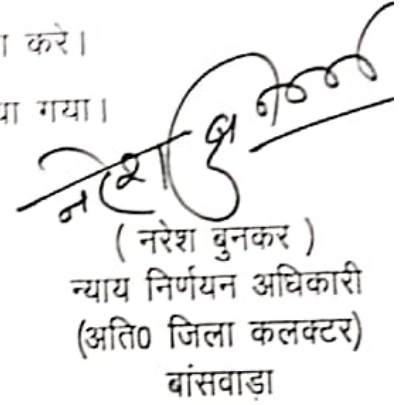 करे।
गया।
नरेश बुनकर
( नरेश बुनकर )
न्याय निर्णयन अधिकारी
(अति0 जिला कलक्टर)
बांसवाड़ा